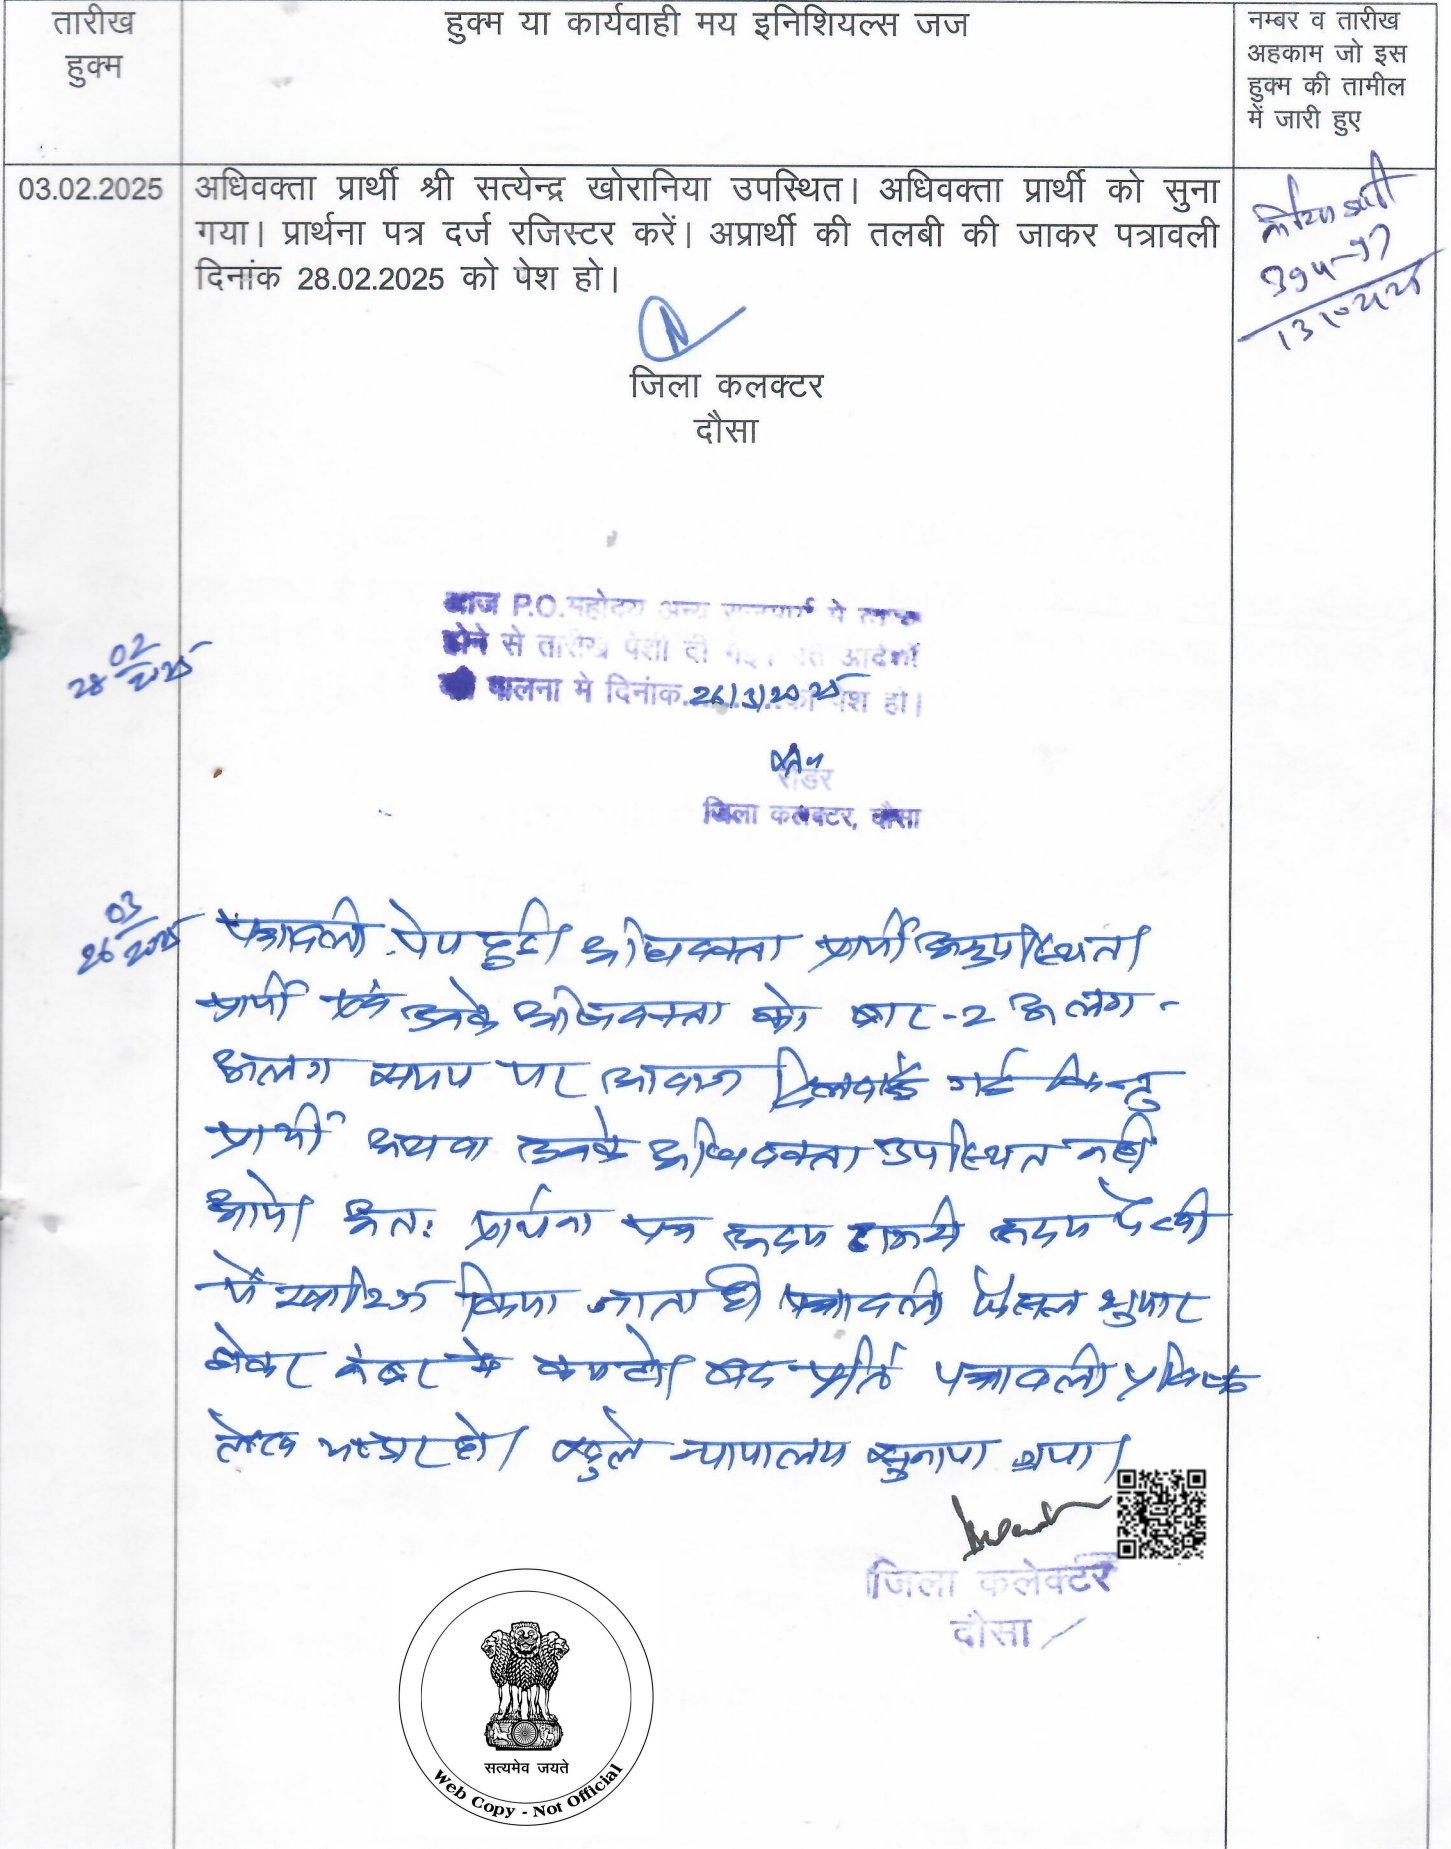 तारीख
हुक्म
हुक्म या कार्यवाही मय इनिशियल्स जज
नम्बर व तारीख
अहकाम जो इस
हुक्म की तामील
में जारी हुए
03.02.2025
अधिवक्ता प्रार्थी श्री सत्येन्द्र खोरानिया उपस्थित। अधिवक्ता प्रार्थी को सुना
गया। प्रार्थना पत्र दर्ज रजिस्टर करें। अप्रार्थी की तलबी की जाकर पत्रावली
दिनांक 28.02.2025 को पेश हो।
जिला कलक्टर
दौसा
28 02 2025
आज P.O. महोदय अन्य राजकार्य मे व्यस्त
होने से तारीख पेशी दी गई। गत आदेशों
की पालना मे दिनांक 26/3/2025 को पेश हो।
रीडर
जिला कलक्टर, दौसा
26 03 2025
पत्रावली पेश हुई। अधिवक्ता प्रार्थी अनुपस्थित।
प्रार्थी एवं उनके अधिवक्ता को बार-2 अलग-
अलग समय पर आवाज दिलवाई गई किन्तु
प्रार्थी अथवा उनके अधिवक्ता उपस्थित नहीं
आये। अतः प्रार्थना पत्र अदम हाजरी अदम पैरवी
में खारिज किया जाता है। पत्रावली फैसल शुमार
होकर नंबर से कम हो। बाद पूर्ति पत्रावली
हो। खुले न्यायालय सुनाया गया।
जिला कलेक्टर
दौसा
सत्यमेव जयते
Web Copy - Not Official